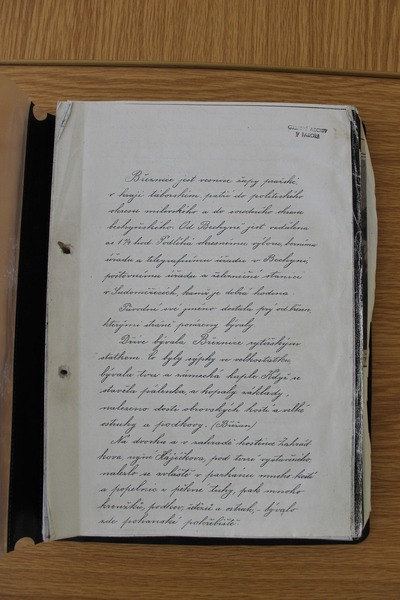 OKRESNÍ ARCHIV
V TÁBOŘE
Březnice jest vesnice župy pražské
v kraji táborském, patří do politického
okresu milevského a do soudního okresu
bechyňského. Od Bechyně jest vzdálena
as 1¾ hod. Podléhá okresnímu výboru, bernímu
úřadu a telegrafnímu úřadu v Bechyni,
poštovnímu úřadu a železniční stanice
v Sudoměřicích, kamž je dobrá hodina
Původně své jméno dostala prý od bříz,
kterými stráně porostlé bývaly
Dříve bývala Březnice rytířským
statkem. Co byly výpky u velkostatku,
bývala tvrz a zámecká kaple. Když se
stavěla pálenka, a kopaly základy,
nalezeno dosti obrovských kostí a velké
ostruhy a podkovy. (Bürian)
Na dvorku a v zahradě hostince
nyní Hájíčkova, pod tvrzí vystavěného,
nalezlo se zvláště v parkánu mnoho kostí
a popelnic z pěkné tuhy, pak mnoho
kroužků, podkov, železí a ostruh, - bývalo
zde pohanské pohřebiště